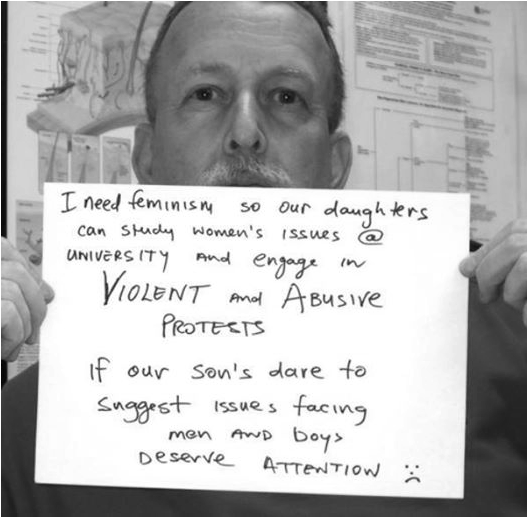 I need feminism so our daughters
can study women's issues @
UNIVERSITY AND engage in
VIOLENT AND ABUSIVE
PROTESTS
If our son's dare to
suggest issues facing
men AND boys
DESERVE ATTENTION :(